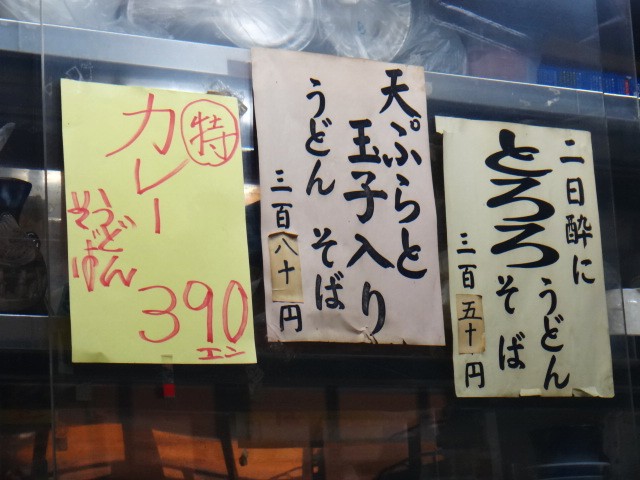 二日酔に
とろろ
うどん
そば
三百五十円
天ぷらと
玉子入り
うどん そば
三百八十円
特
カレー
うどん
そば
390
エン